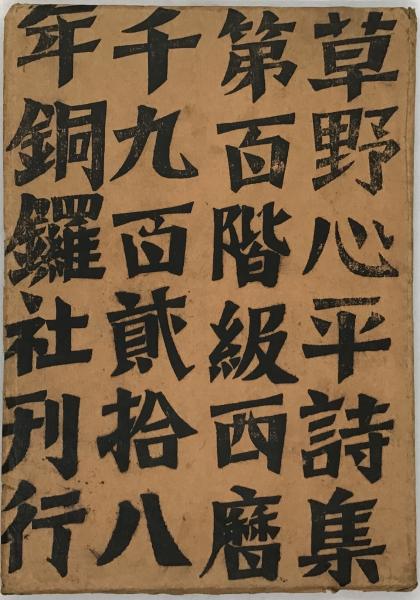 草野心平詩集
第百階級西暦
千九百貳拾八
年銅鑼社刊行